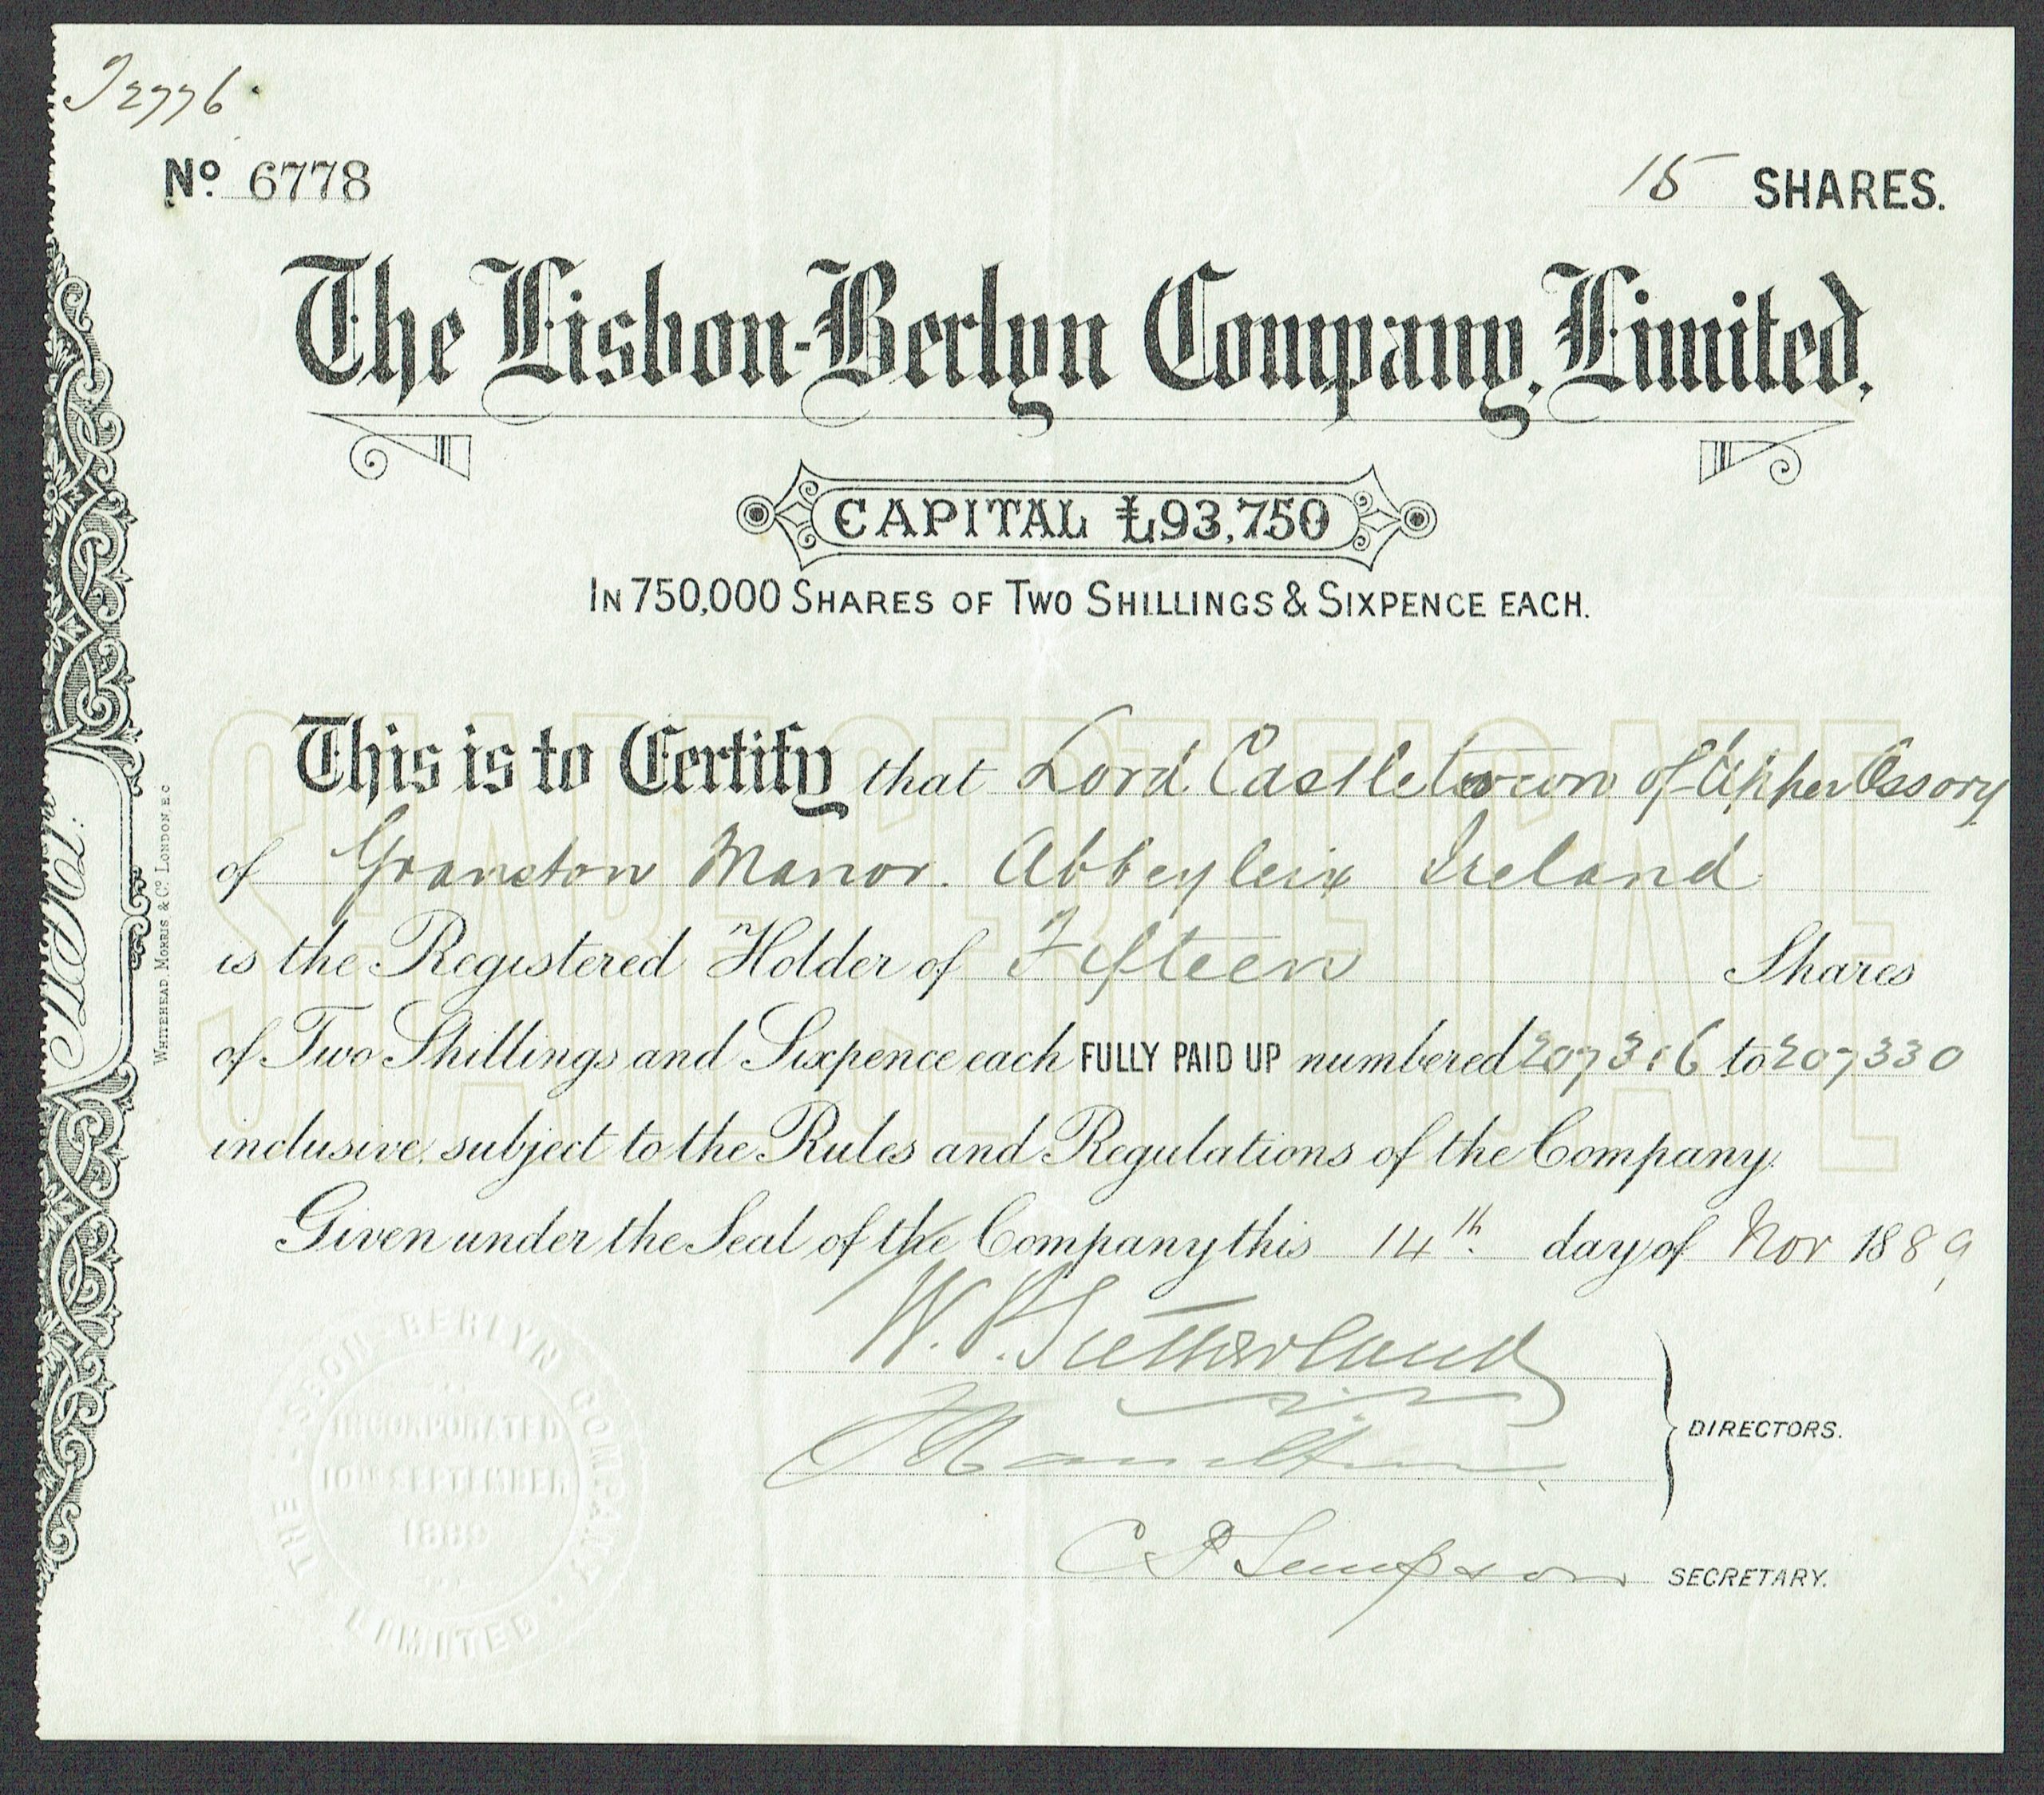 J2776
No. 6778
15 SHARES.
The Lisbon-Berlyn Company, Limited.
CAPITAL £93,750
IN 750,000 SHARES OF TWO SHILLINGS & SIXPENCE EACH.
SHARE CERTIFICATE
This is to Certify that Lord Castletown of Upper Ossory
of Granston Manor. Abbeyleix Ireland
is the Registered Holder of Fifteen Shares
of Two Shillings and Sixpence each FULLY PAID UP numbered 207316 to 207330
inclusive, subject to the Rules and Regulations of the Company.
Given under the Seal of the Company this 14th day of Nov 1889
W. P. Sutherland
J Hamilton
DIRECTORS.
C S Sempson
SECRETARY.
THE LISBON-BERLYN COMPANY LIMITED
INCORPORATED
10TH SEPTEMBER
1889
WHITEHEAD, MORRIS & CO. LONDON, E.C